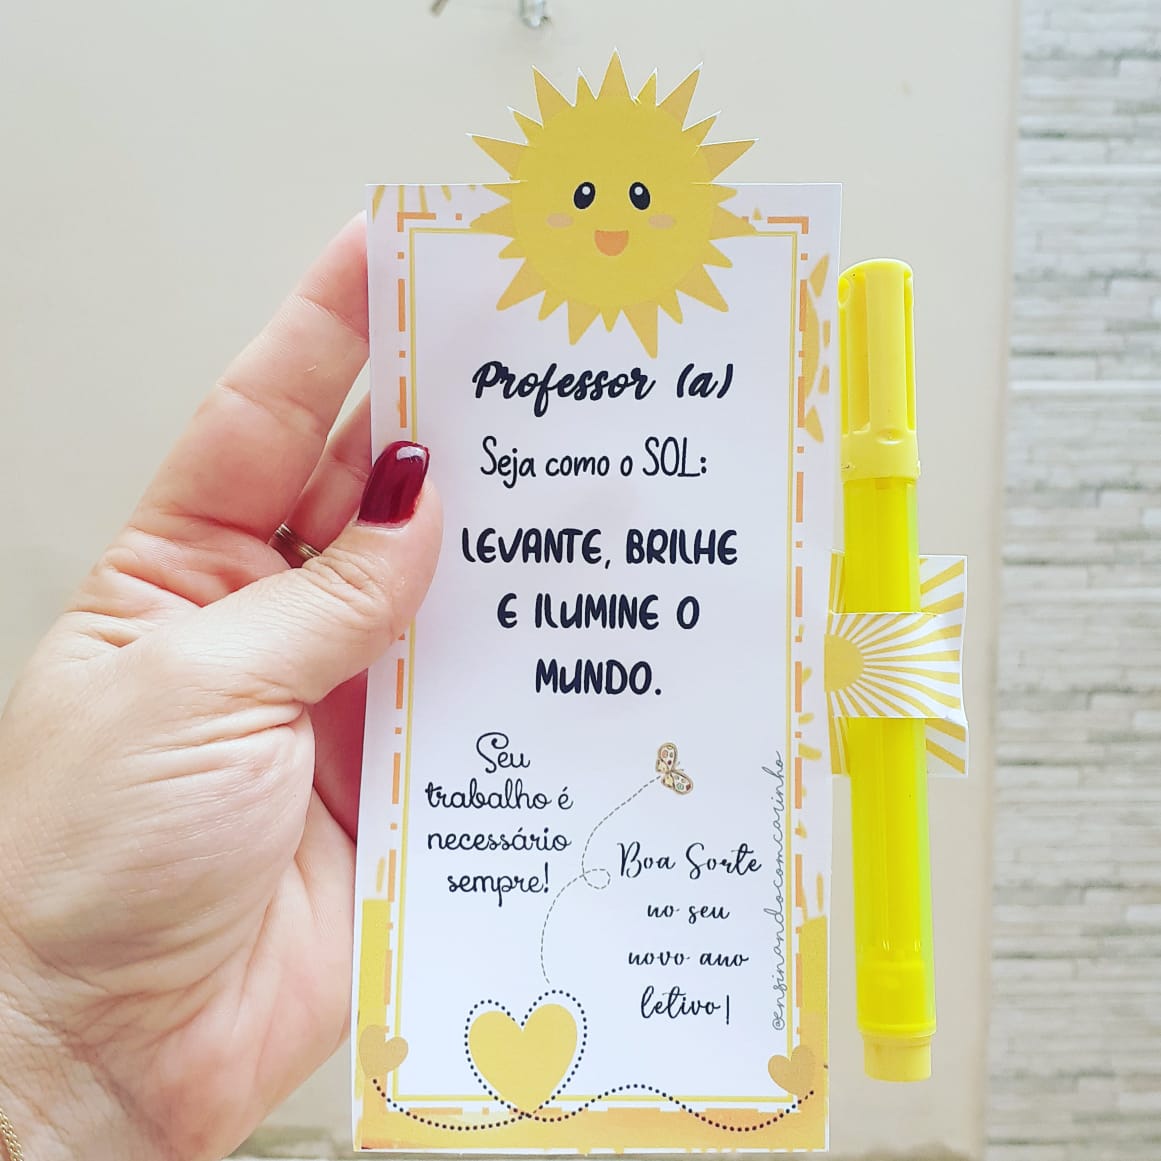 Professor (a)
Seja como o SOL:
LEVANTE, BRILHE
E ILUMINE O
MUNDO.
Seu
trabalho é
necessário
sempre!
Boa Sorte
no seu
novo ano
letivo!
@ensinandocomcarinho